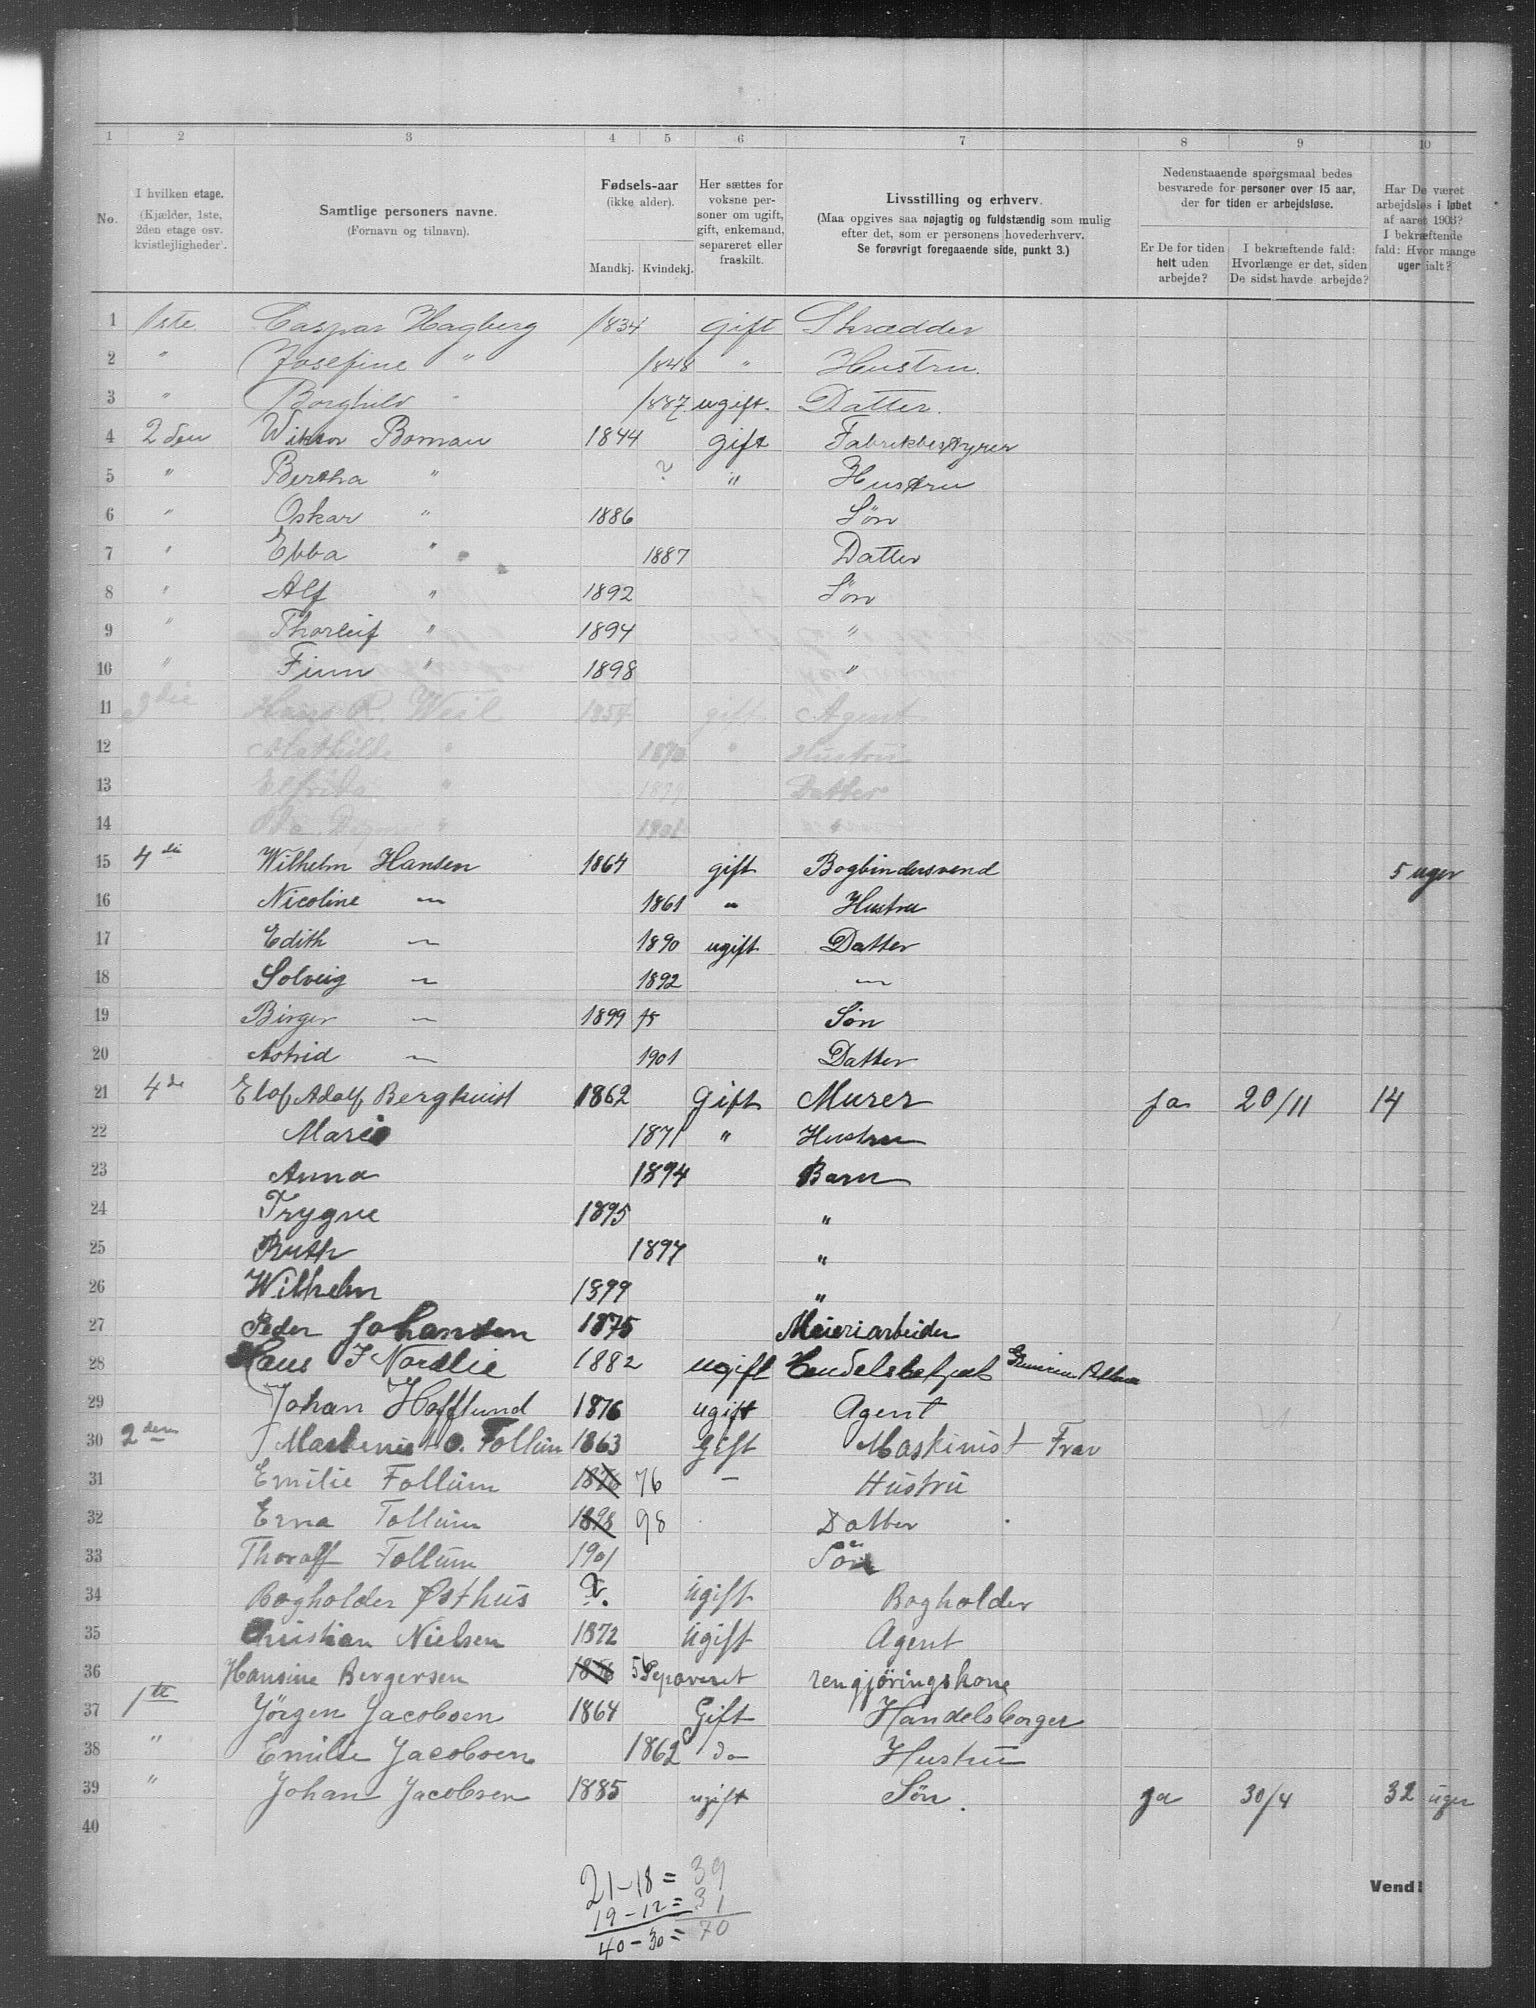 1 2 3 4 5 6 7 8 9 10
No.
I hvilken etage.
(Kjælder, 1ste,
2den etage osv.
kvistlejligheder).
Samtlige personers navne.
(Fornavn og tilnavn).
Fødsels-aar
(ikke alder).
Mandkj. Kvindekj.
Her sættes for
voksne per-
soner om ugift,
gift, enkemand,
separeret eller
fraskilt.
Livsstilling og erhverv.
(Maa opgives saa nøjagtig og fuldstændig som mulig
efter det, som er personens hovederhverv.
Se forøvrigt foregaaende side, punkt 3.)
Nedenstaaende spørgsmaal bedes
besvarede for personer over 15 aar,
der for tiden er arbejdsløse.
Er De for tiden
helt uden
arbejde?
I bekræftende fald:
Hvorlænge er det, siden
De sidst havde arbejde?
Har De været
arbejdsløs i løbet
af aaret 1903?
I bekræftende
fald: Hvor mange
uger ialt?
1 1ste Caspar Hagberg 1834 gift Skrædder
2 " Josefine " 1848 " Hustru.
3 " Borghild " 1887 ugift. Datter.
4 2den Wiktor Boman 1844 gift Fabrikbestyrer
5 " Bertha " ? " Hustru
6 " Oskar " 1886 Søn
7 " Ebba " 1887 Datter
8 " Alf " 1892 Søn
9 " Thorleif " 1894 "
10 " Finn " 1898 "
11 3die Hans R. Weil gift Agent
12 Mathilde " 1870 " Hustru
13 Elfrida " Datter
14 " 1901 "
15 4die Wilhelm Hansen 1864 gift Bogbindersvend 5 uger
16 Nicoline — 1861 " Hustru
17 Edith — 1890 ugift Datter
18 Solveig — 1892 —
19 Birger — 1899 Søn
20 Astrid — 1901 Datter
21 4de Elof Adolf Berghuist 1862 Gift Murer ja 20/11 14
22 Marie 1871 " Hustru
23 Anna 1894 Barn
24 Trygve 1895 "
25 Ruth 1897 "
26 Wilhelm 1899 "
27 Peder Johansen 1875 Meieriarbeider
28 Haus J Nordlie 1882 ugift Handelsbetjent
29 Johan Hofflund 1876 ugift Agent
30 2den O. Follum 1863 gift Maskinist
31 Emilie Follum 1876 76 — Hustru
32 Erna Follum 1898 98 Datter
33 Thoralf Follum 1901 Søn
34 Bogholder Østhus ?. Ugift Bogholder
35 Christian Nielsen 1872 Ugift Agent
36 Hansine Bergersen Separeret rengjøringskone
37 1ste Jørgen Jacobsen 1864 Gift Handelsborger
38 " Emilie Jacobsen 1862 do Hustru
39 " Johan Jacobsen 1885 ugift Søn. ja 30/4 32 uger
40
21-18 = 39
19-12 = 31
40-30 = 70
Vend!